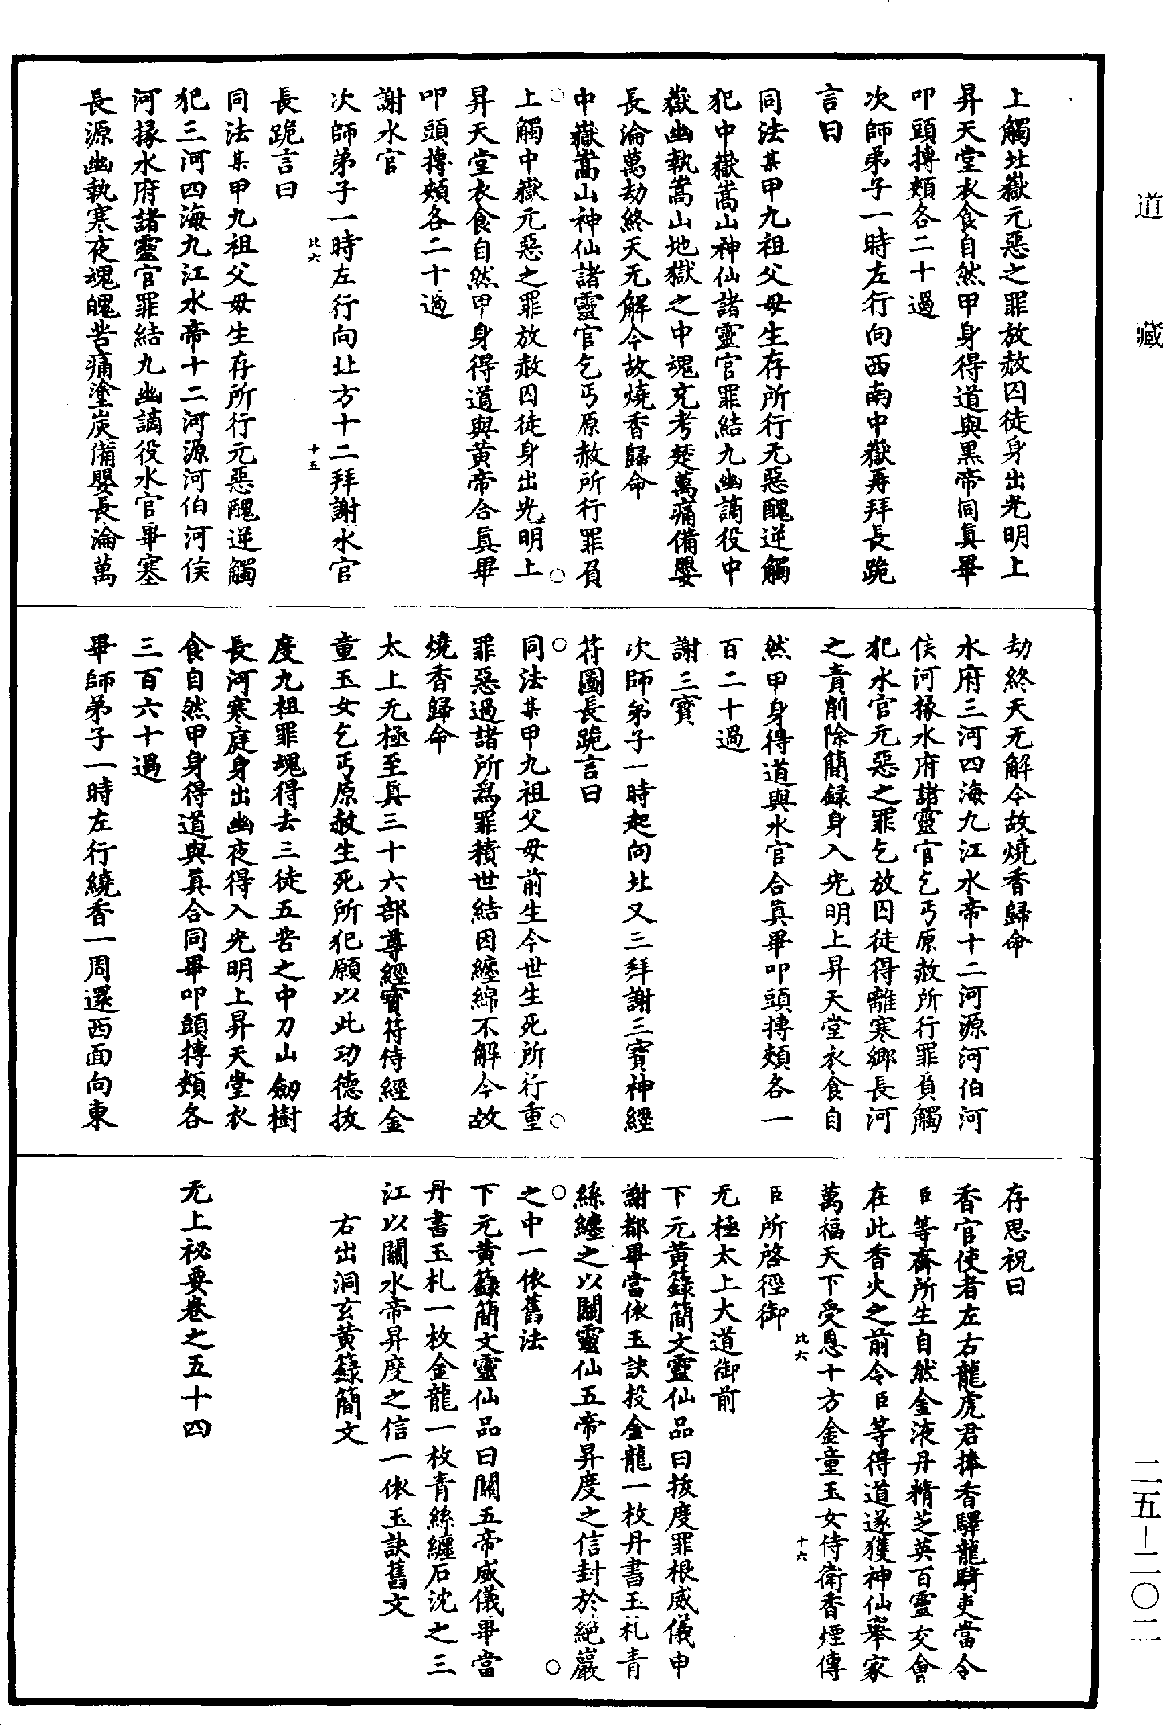 道藏
上觸北嶽元惡之罪放赦囚徒身出光明上
昇天堂衣食自然甲身得道與黑帝同真畢
叩頭摶頰各二十過
次師弟子一時左行向西南中嶽再拜長跪
言曰
同法某甲九祖父母生存所行元惡醜逆觸
犯中嶽嵩山神仙諸靈官罪結九幽謫役中
嶽幽執嵩山地獄之中魂充考楚萬痛備嬰
長淪萬劫終天无解今故燒香歸命
中嶽嵩山神仙諸靈官乞丐原赦所行罪負
上觸中嶽元惡之罪放赦囚徒身出光明上
昇天堂衣食自然甲身得道與黃帝合真畢
叩頭摶頰各二十過
謝水官
次師弟子一時左行向北方十二拜謝水官
比六 十五
長跪言曰
同法某甲九祖父母生存所行元惡醜逆觸
犯三河四海九江水帝十二河源河伯河侯
河掾水府諸靈官罪結九幽謫役水官畢塞
長源幽執寒夜魂魄苦痛塗炭備嬰長淪萬
劫終天无解今故燒香歸命
水府三河四海九江水帝十二河源河伯河
侯河掾水府諸靈官乞丐原赦所行罪負觸
犯水官元惡之罪乞放囚徒得離寒鄉長河
之責削除簡録身入光明上昇天堂衣食自
然甲身得道與水官合真畢叩頭摶頰各一
百二十過
謝三寶
次師弟子一時起向北又三拜謝三寶神經
符圖長跪言曰
同法某甲九祖父母前生今世生死所行重
罪惡過諸所為罪積世結因纏綿不解今故
燒香歸命
太上无極至真三十六部尊經寶符侍經金
童玉女乞丐原赦生死所犯願以此功德拔
度九祖罪魂得去三徒五苦之中刀山劒樹
長河寒庭身出幽夜得入光明上昇天堂衣
食自然甲身得道與真合同畢叩頭摶頰各
三百六十過
畢師弟子一時左行繞香一周還西面向東
存思祝曰
香官使者左右龍虎君捧香驛龍騎吏當令
臣等齋所生自然金液丹精芝英百靈交會
在此香火之前令臣等得道遂獲神仙舉家
萬福天下受恩十方金童玉女侍衛香煙傳
比六 十六
臣所啓徑御
无極太上大道御前
下元黃籙簡文靈仙品曰拔度罪根威儀申
謝都畢當依玉訣投金龍一枚丹書玉札青
絲纏之以關靈仙五帝昇度之信封於絕巖
之中一依舊法
下元黃籙簡文靈仙品曰關五帝威儀畢當
丹書玉札一枚金龍一枚青絲纏石沈之三
江以關水帝昇度之信一依玉訣舊文
右出洞玄黃籙簡文
无上祕要卷之五十四
二五－二〇二